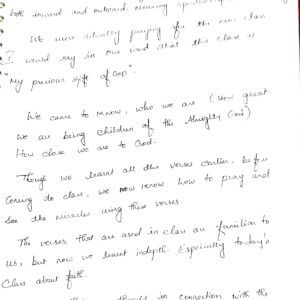 both inward and outward. Meaning spiritually
We were actually praying for the new class
I would say in one word that this class is
"My precious gift of GOD"
We came to know, who we are (How great
we are being children of the Almighty God)
How close we are to God.
Though we learnt all the verses earlier, before
coming to class, we now know how to pray and
see the miracles using these verses.
The verses that are used in class are familiar to
us, but now we learnt indepth. Especially today's
class about faith.
thought in connection with the